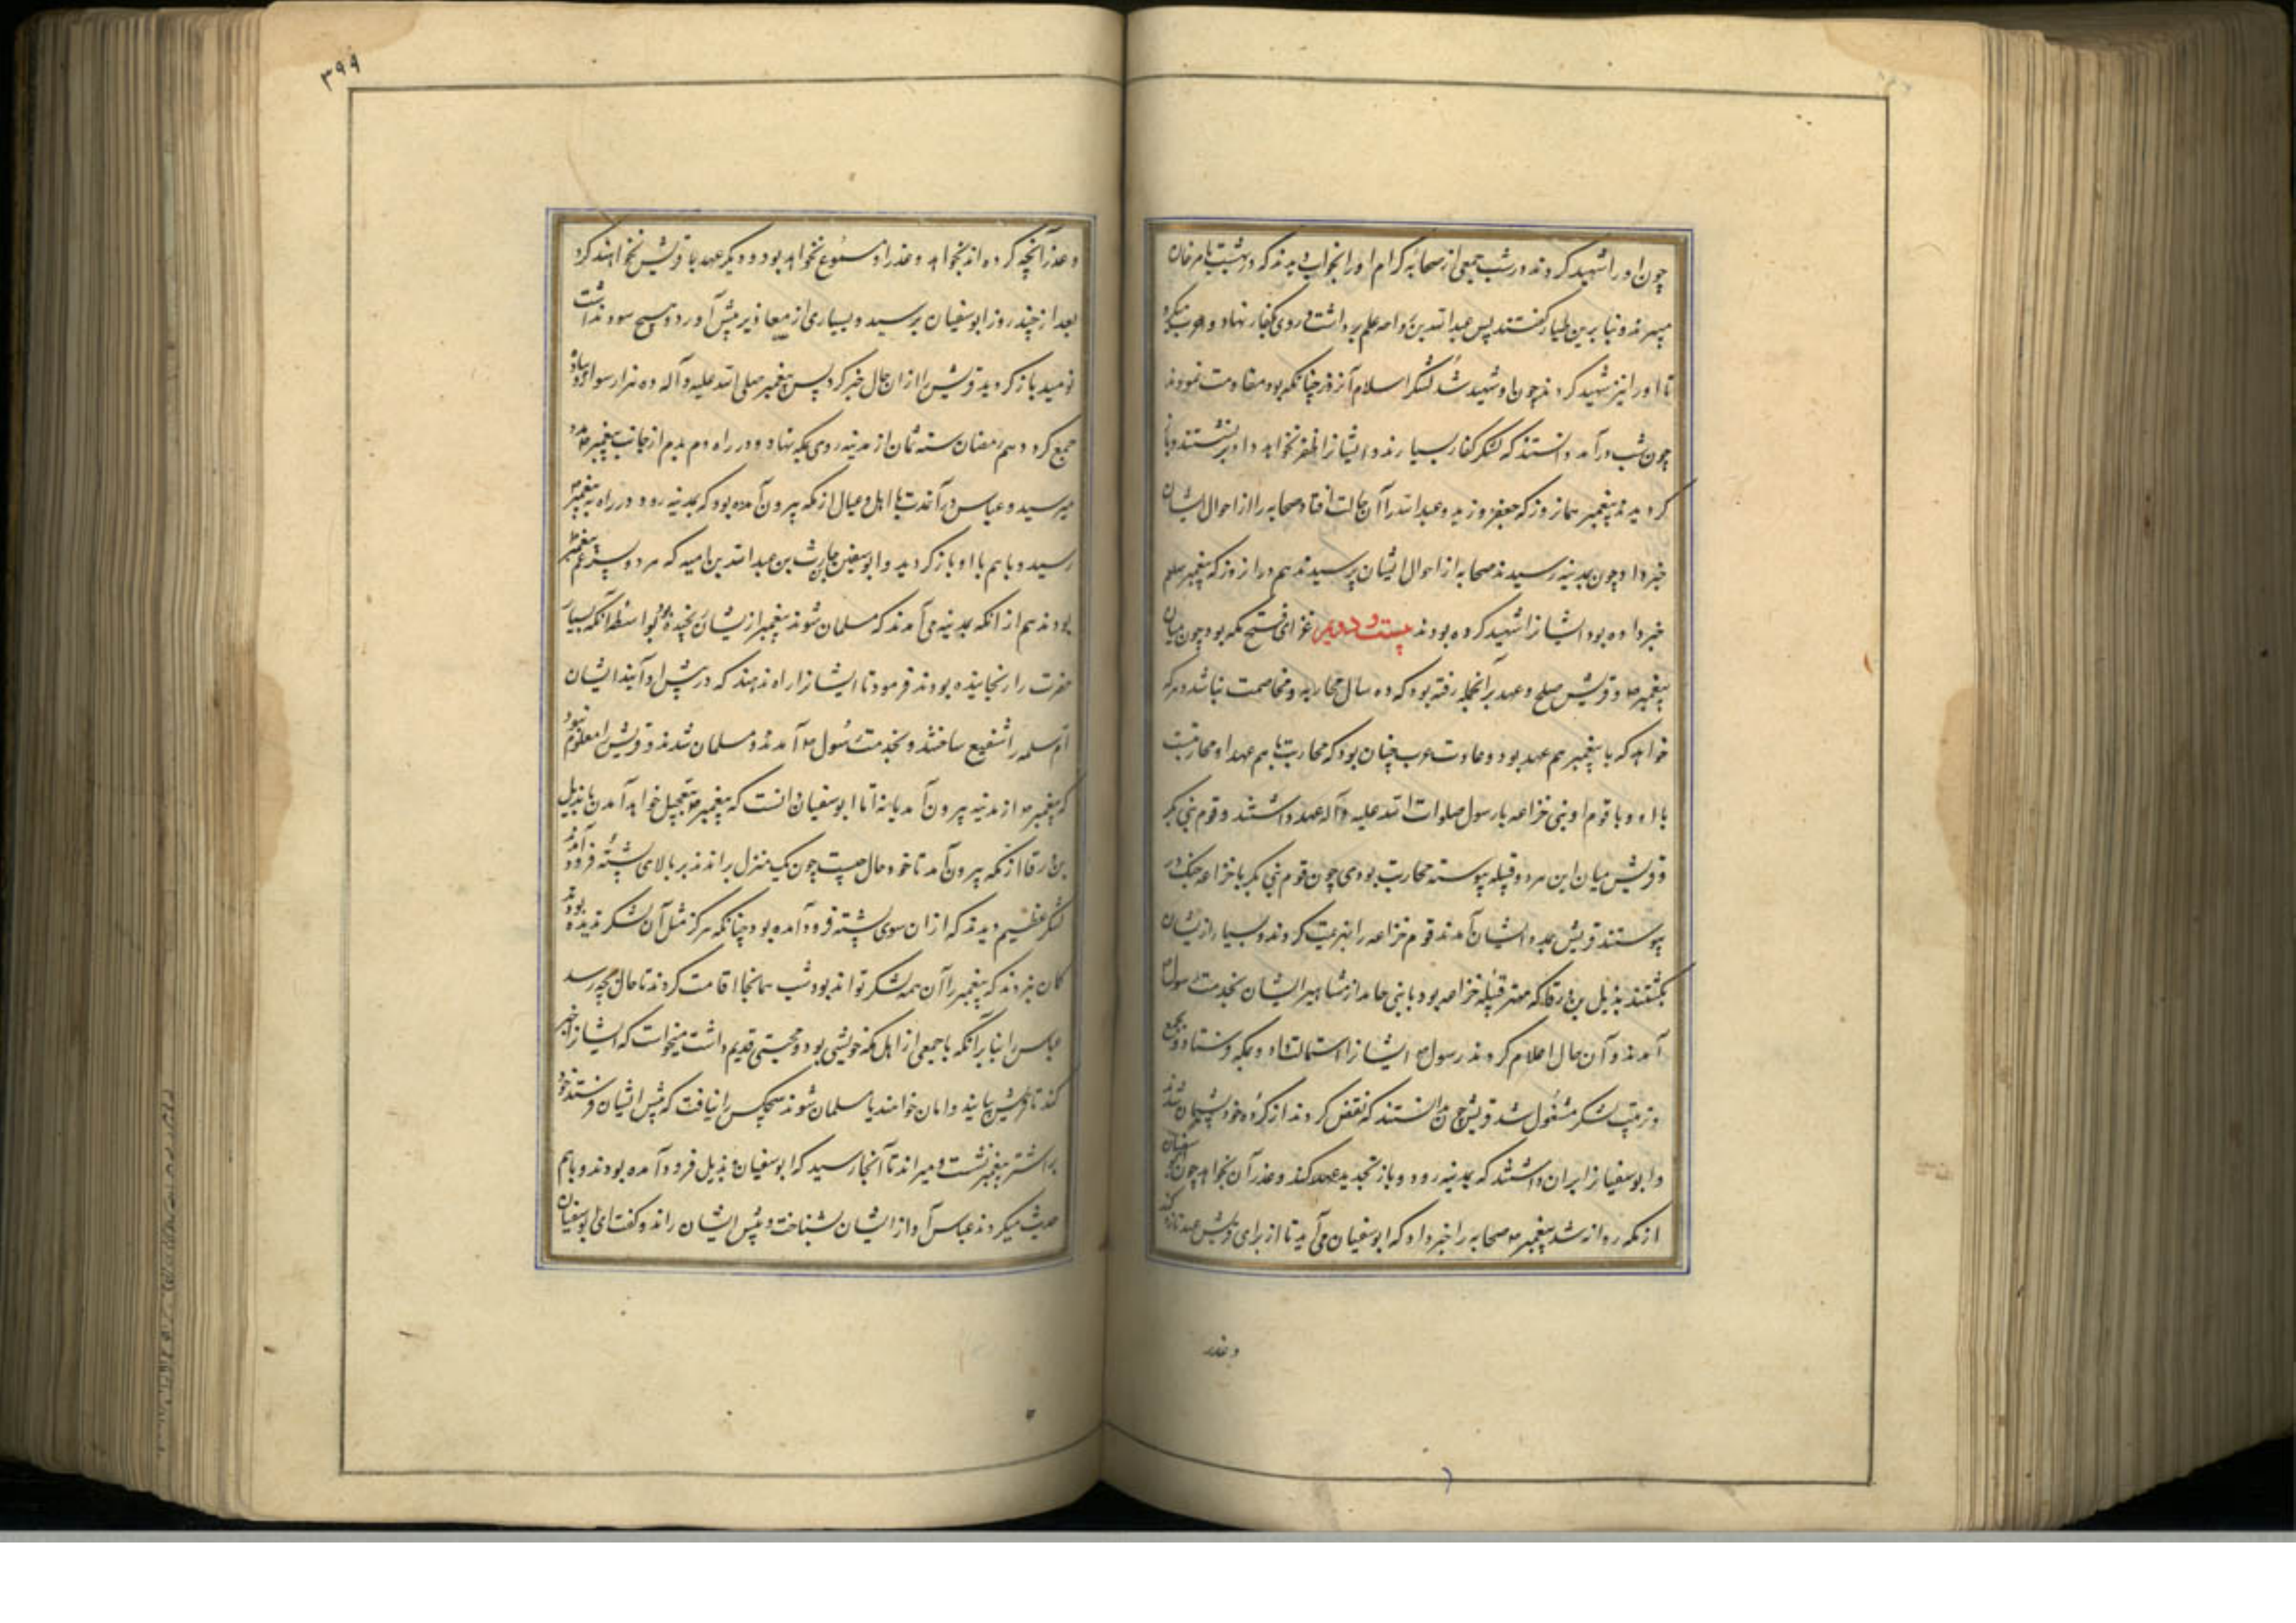 چون او را شهید کردند در شب جمعی از صحابه کرام او را بخواب دیدند که در بهشت با مرغان
میپرند و بنا برین طیار گفتند پس عبدالله بن رواحه علم برداشت و روی بکفار نهاد و حرب میکرد
تا او را نیز شهید کردند چون او شهید شد لشکر اسلام آنروز چنانکه بود مقاومت نمودند
چون شب درآمد دانستند که لشکر کفار بسیارند و ایشانرا ظفر نخواهد داد برنشستند و باز
گردیدند پیغمبر همانروز که جعفر و زید و عبدالله را آن حالت افتاد صحابه را از احوال ایشان
خبر داد و چون بمدینه رسیدند صحابه از احوال ایشان پرسیدند هم در آنروز که پیغمبر صلعم
خبر داده بود ایشانرا شهید کرده بودند بیست و دویم غزای فتح مکه بود چون میان
پیغمبر و قریش صلح و عهد بر آنجمله رفته بود که ده سال محاربه و مخاصمت نباشد و هر که
خواهد که با پیغمبر هم عهد بود و عادت عرب چنان بود که محاربت با هم عهد او محاربتست
با او و با قوم او بنی خزاعه با رسول صلوات الله علیه و آله عهد داشتند و قوم بنی بکر
و قریش میان این هر دو قبیله پیوسته محاربت بودی چون قوم بنی بکر با خزاعه جنگ در
پیوستند قریش بمدد ایشان آمدند قوم خزاعه را هزیمت کردند و بسیار از ایشان
بکشتند بدیل بن ورقا که مهتر قبیله خزاعه بود با تنی چند از مشاهیر ایشان بخدمت رسول
آمدند و آن حال اعلام کردند رسول ایشانرا استمالت داد و بمکه فرستاد و بجمع
و ترتیب لشکر مشغول شد قریش چون دانستند که نقض کردند از کرده خود پشیمان شدند
و ابوسفیانرا بران داشتند که بمدینه رود و باز تجدید عهد کند و عذر آن بخواهد چون ابوسفیان
از مکه روانه شد پیغمبر صحابه را خبر داد که ابوسفیان می آید تا از برای قریش عهد تازه کند
و عذر
۳۹۹
و عذر آنچه کرده اند بخواهد و عذر او مسموع نخواهد بود و دیگر عهد با قریش نخواهند کرد
بعد از چند روز ابوسفیان برسید و بسیاری از معاذیر پیش آورد و هیچ سود نداشت
نومید باز گردید و قریش را از ان حال خبر کرد پس پیغمبر صلی الله علیه و آله ده هزار سوار و پیاده
جمع کرد دهم رمضان سنه ثمان از مدینه روی بمکه نهاد و در راه دم بدم از جانب پیغمبر مدد
میرسید و عباس در آن مدت با اهل و عیال از مکه بیرون آمده بود که بمدینه رود در راه به پیغمبر
رسید و با هم با او باز گردید و ابوسفین حارث بن عبدالله بن امیه که هر دو پسر عم پیغمبر
بودند هم از انکه بمدینه می آمدند که مسلمان شوند پیغمبر از یشان رنجیده بود بواسطه آنکه بسیار
حضرت را رنجانیده بودند فرمود تا ایشانرا راه ندهند که در پیش او آیند ایشان
ام سلمه را شفیع ساختند و بخدمت رسول آمدند و مسلمان شدند و قریش را معلوم نبود
که پیغمبر از مدینه بیرون آمد یا نه اما ابوسفیان دانست که پیغمبر بتعجیل خواهد آمدن با بدیل
بن ورقا از مکه بیرون آمد تا خود حال چیست چون یک منزل براندند بر بالای پشته فرود آمدند
لشکر عظیم دیدند که از ان سوی پشته فرود آمده بود چنانکه هرگز مثل آن لشکر ندیده بودند
گمان نبردند که پیغمبر را آن همه لشکر تواند بود شب همانجا اقامت کردند تا حال بچه رسد
عباس را بنا بر آنکه با جمعی از اهل مکه خویشی بود و محبتی قدیم داشت میخواست که ایشانرا خبر
کند تا قریش بیایند و امان خواهند یا مسلمان شوند هیچکس را نیافت که پیش ایشان فرستد خود
بر اشتر پیغمبر نشست و میراند تا آنجا رسید که ابوسفیان و بدیل فرود آمده بودند و با هم
حدیث میکردند عباس آواز ایشان بشناخت و پیش ایشان راند و گفت ای ابوسفیان